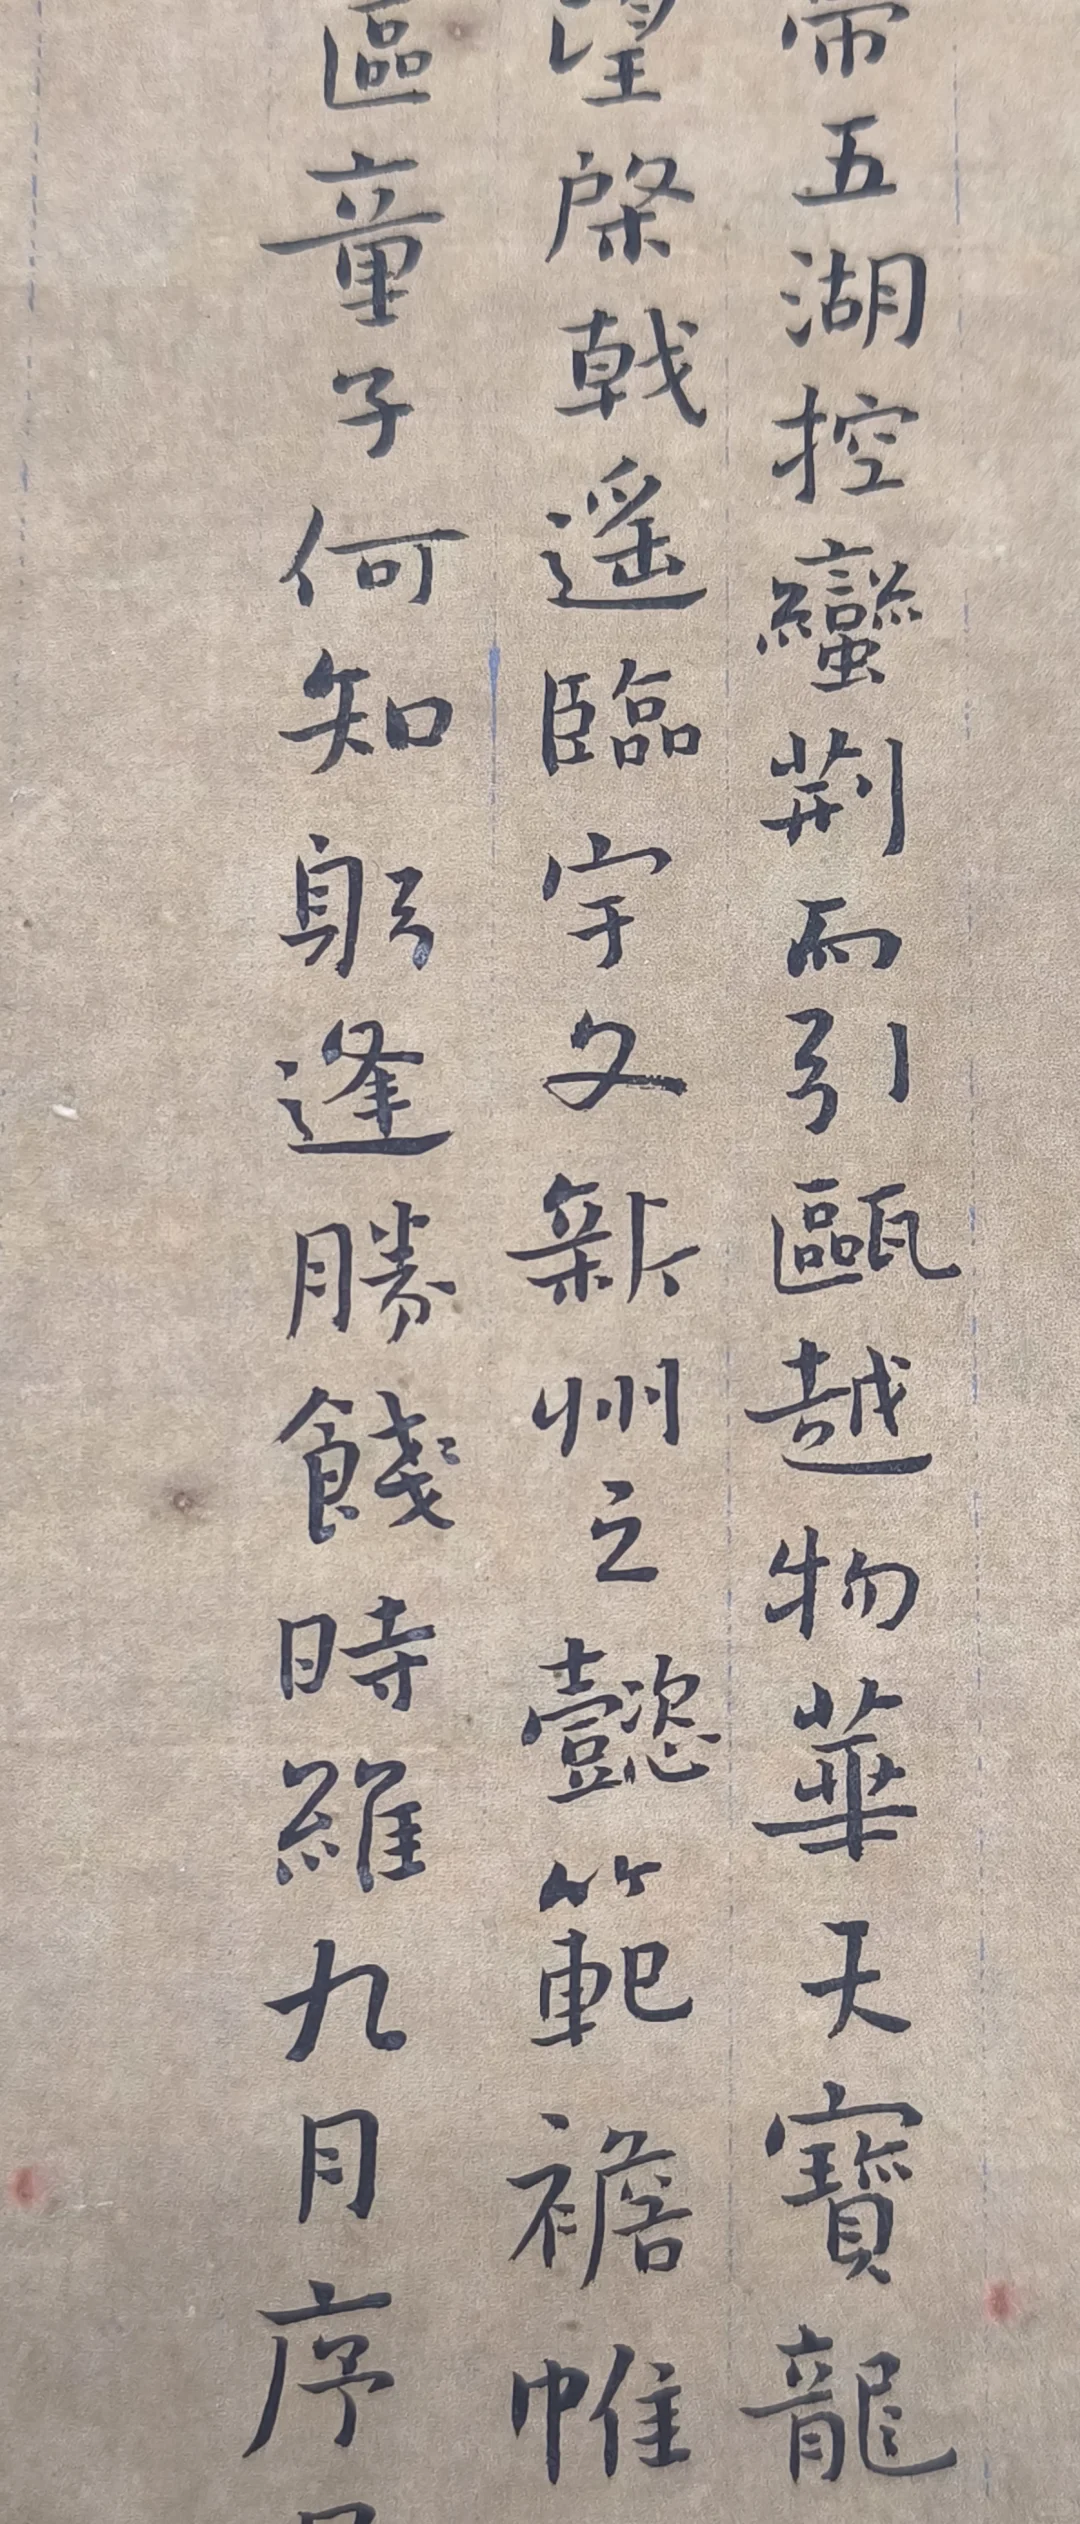 帶五湖控蠻荆而引甌越物華天寶龍
望棨戟遥臨宇文新州之懿範襜帷
區童子何知躬逢勝餞時維九月序